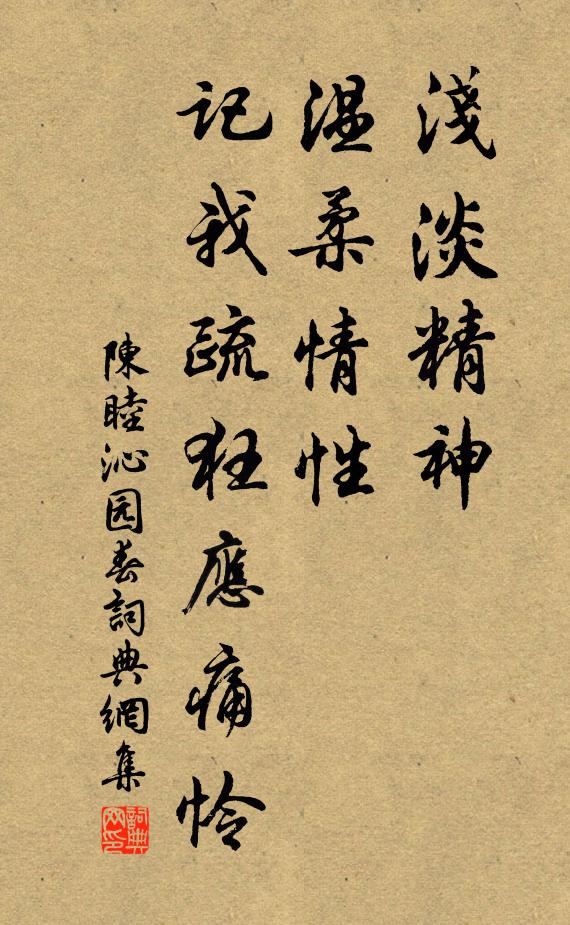 淺淡精神
温柔情性
記我疏狂應痛怜
陳睦沁园春詞典網集
詞典网印